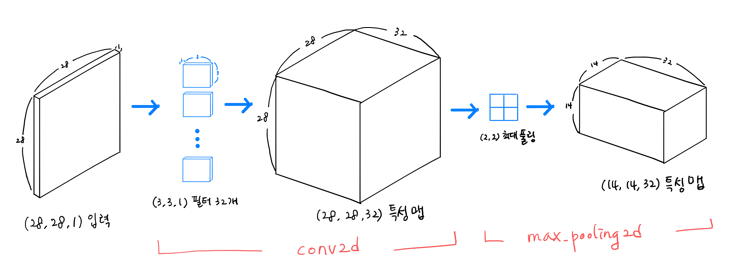 28
1
28
(28, 28, 1) 입력
(3, 3, 1) 필터 32개
28
32
28
(28, 28, 32) 특성 맵
(2, 2) 최대 풀링
14
32
14
(14, 14, 32) 특성 맵
conv2d
max_pooling2d